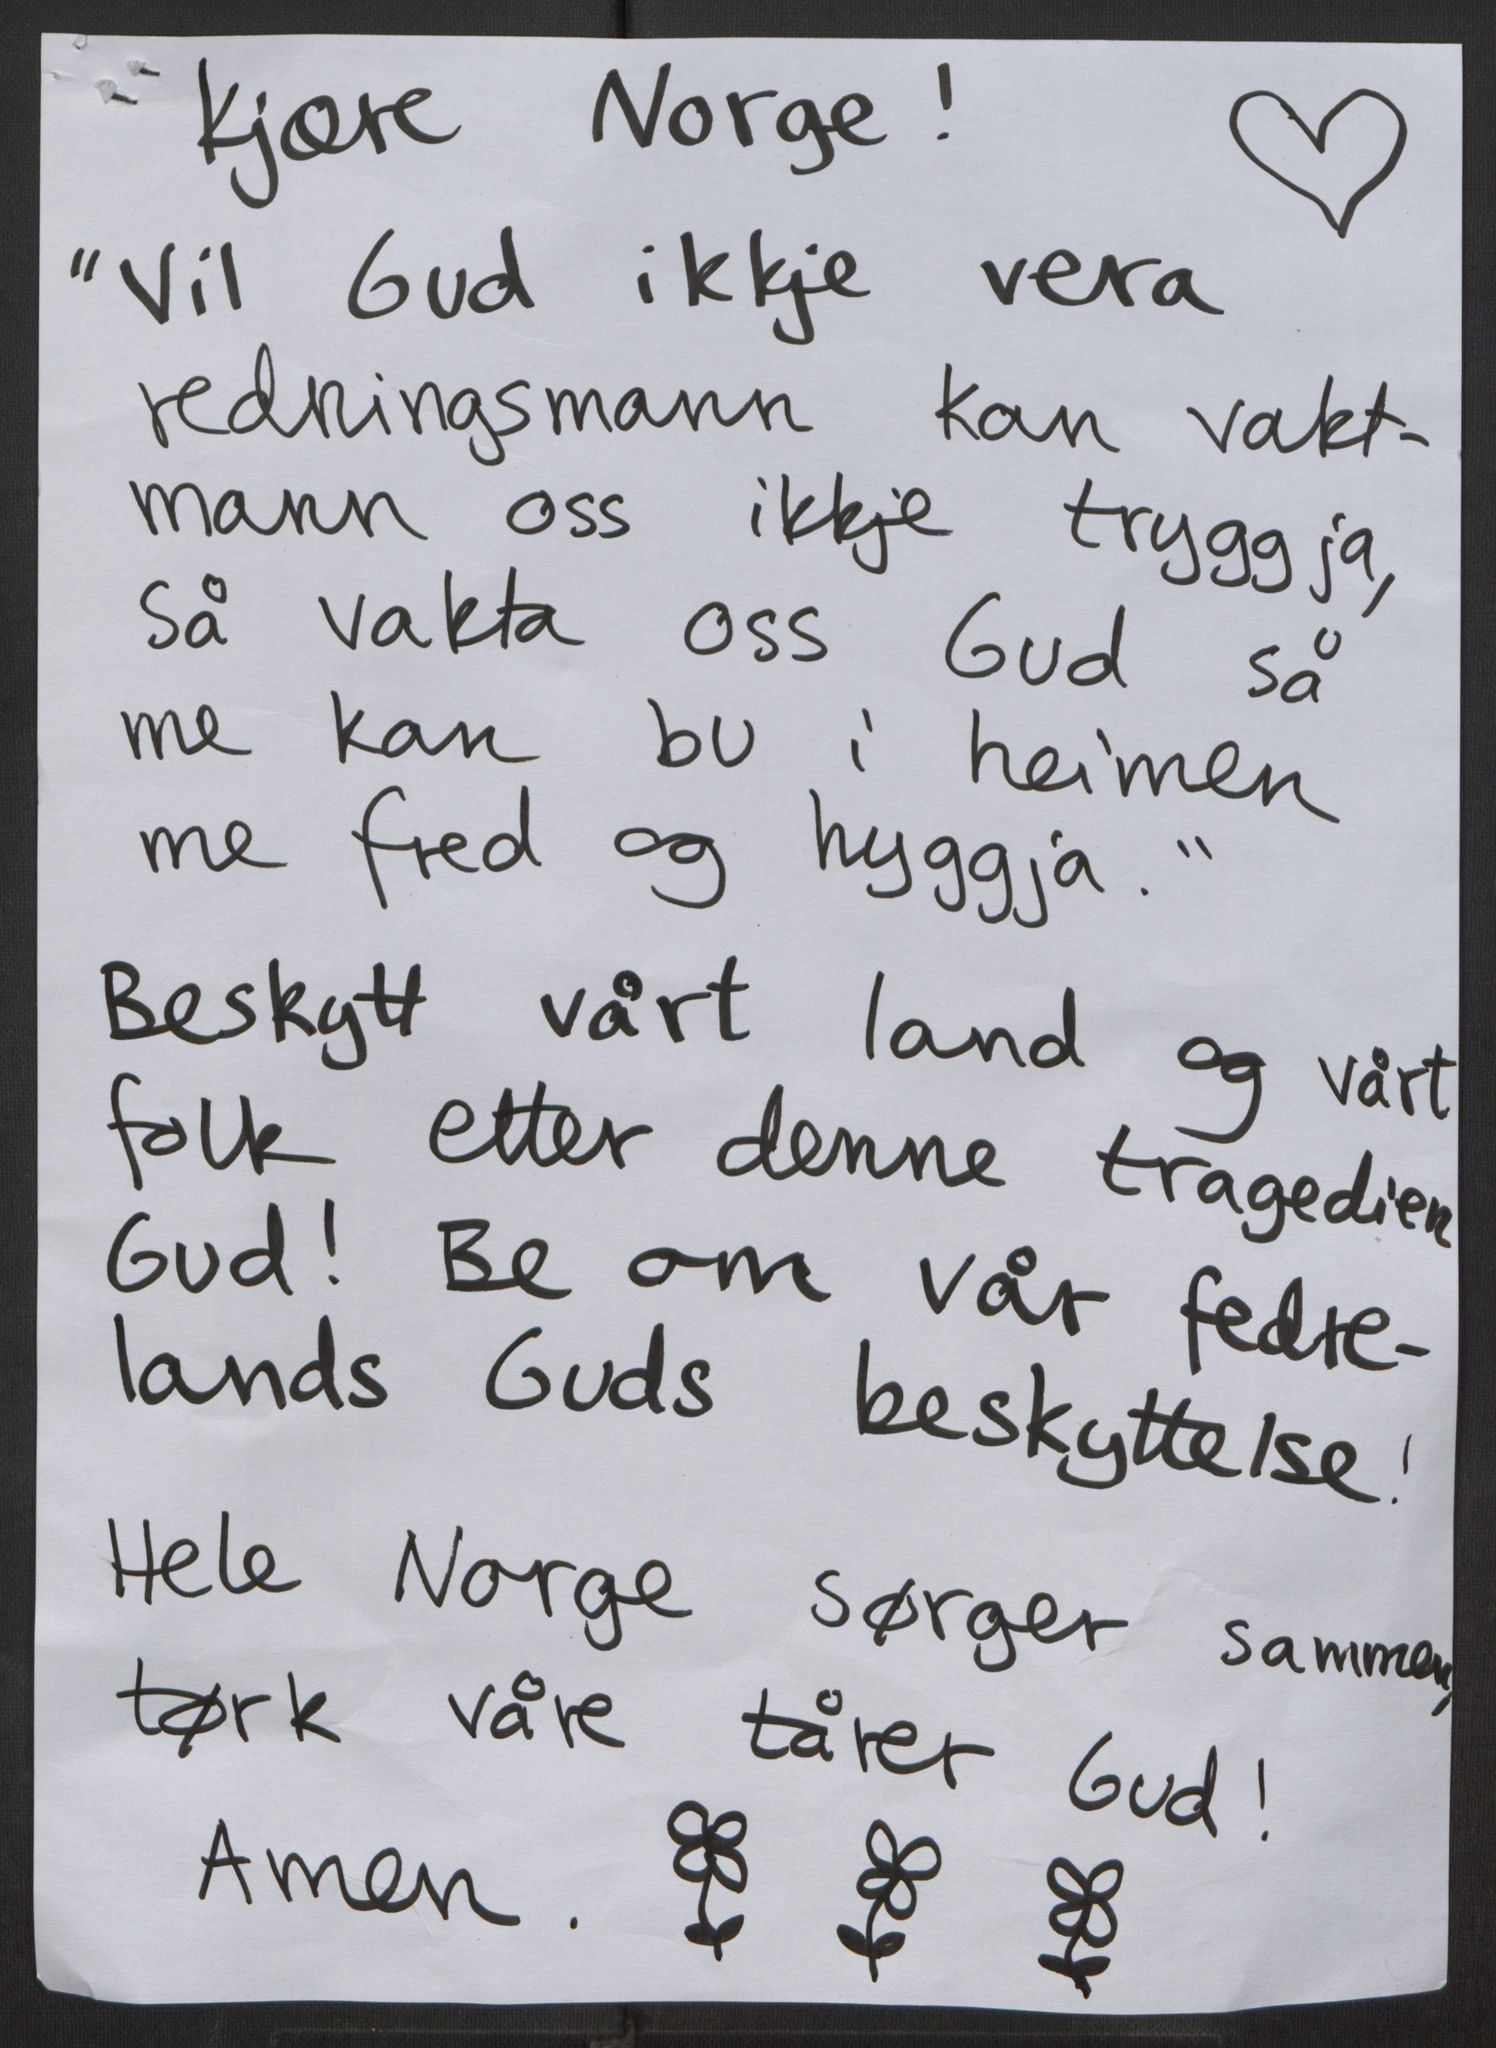 Kjære Norge!
"Vil Gud ikkje vera
redningsmann kan vakt-
mann oss ikkje tryggja,
så vakta oss Gud så
me kan bu i heimen
me fred og hyggja."
Beskytt vårt land og vårt
folk etter denne tragedien
Gud! Be om vår fedre-
lands Guds beskyttelse!
Hele Norge sørger sammen,
tørk våre tårer Gud!
Amen.